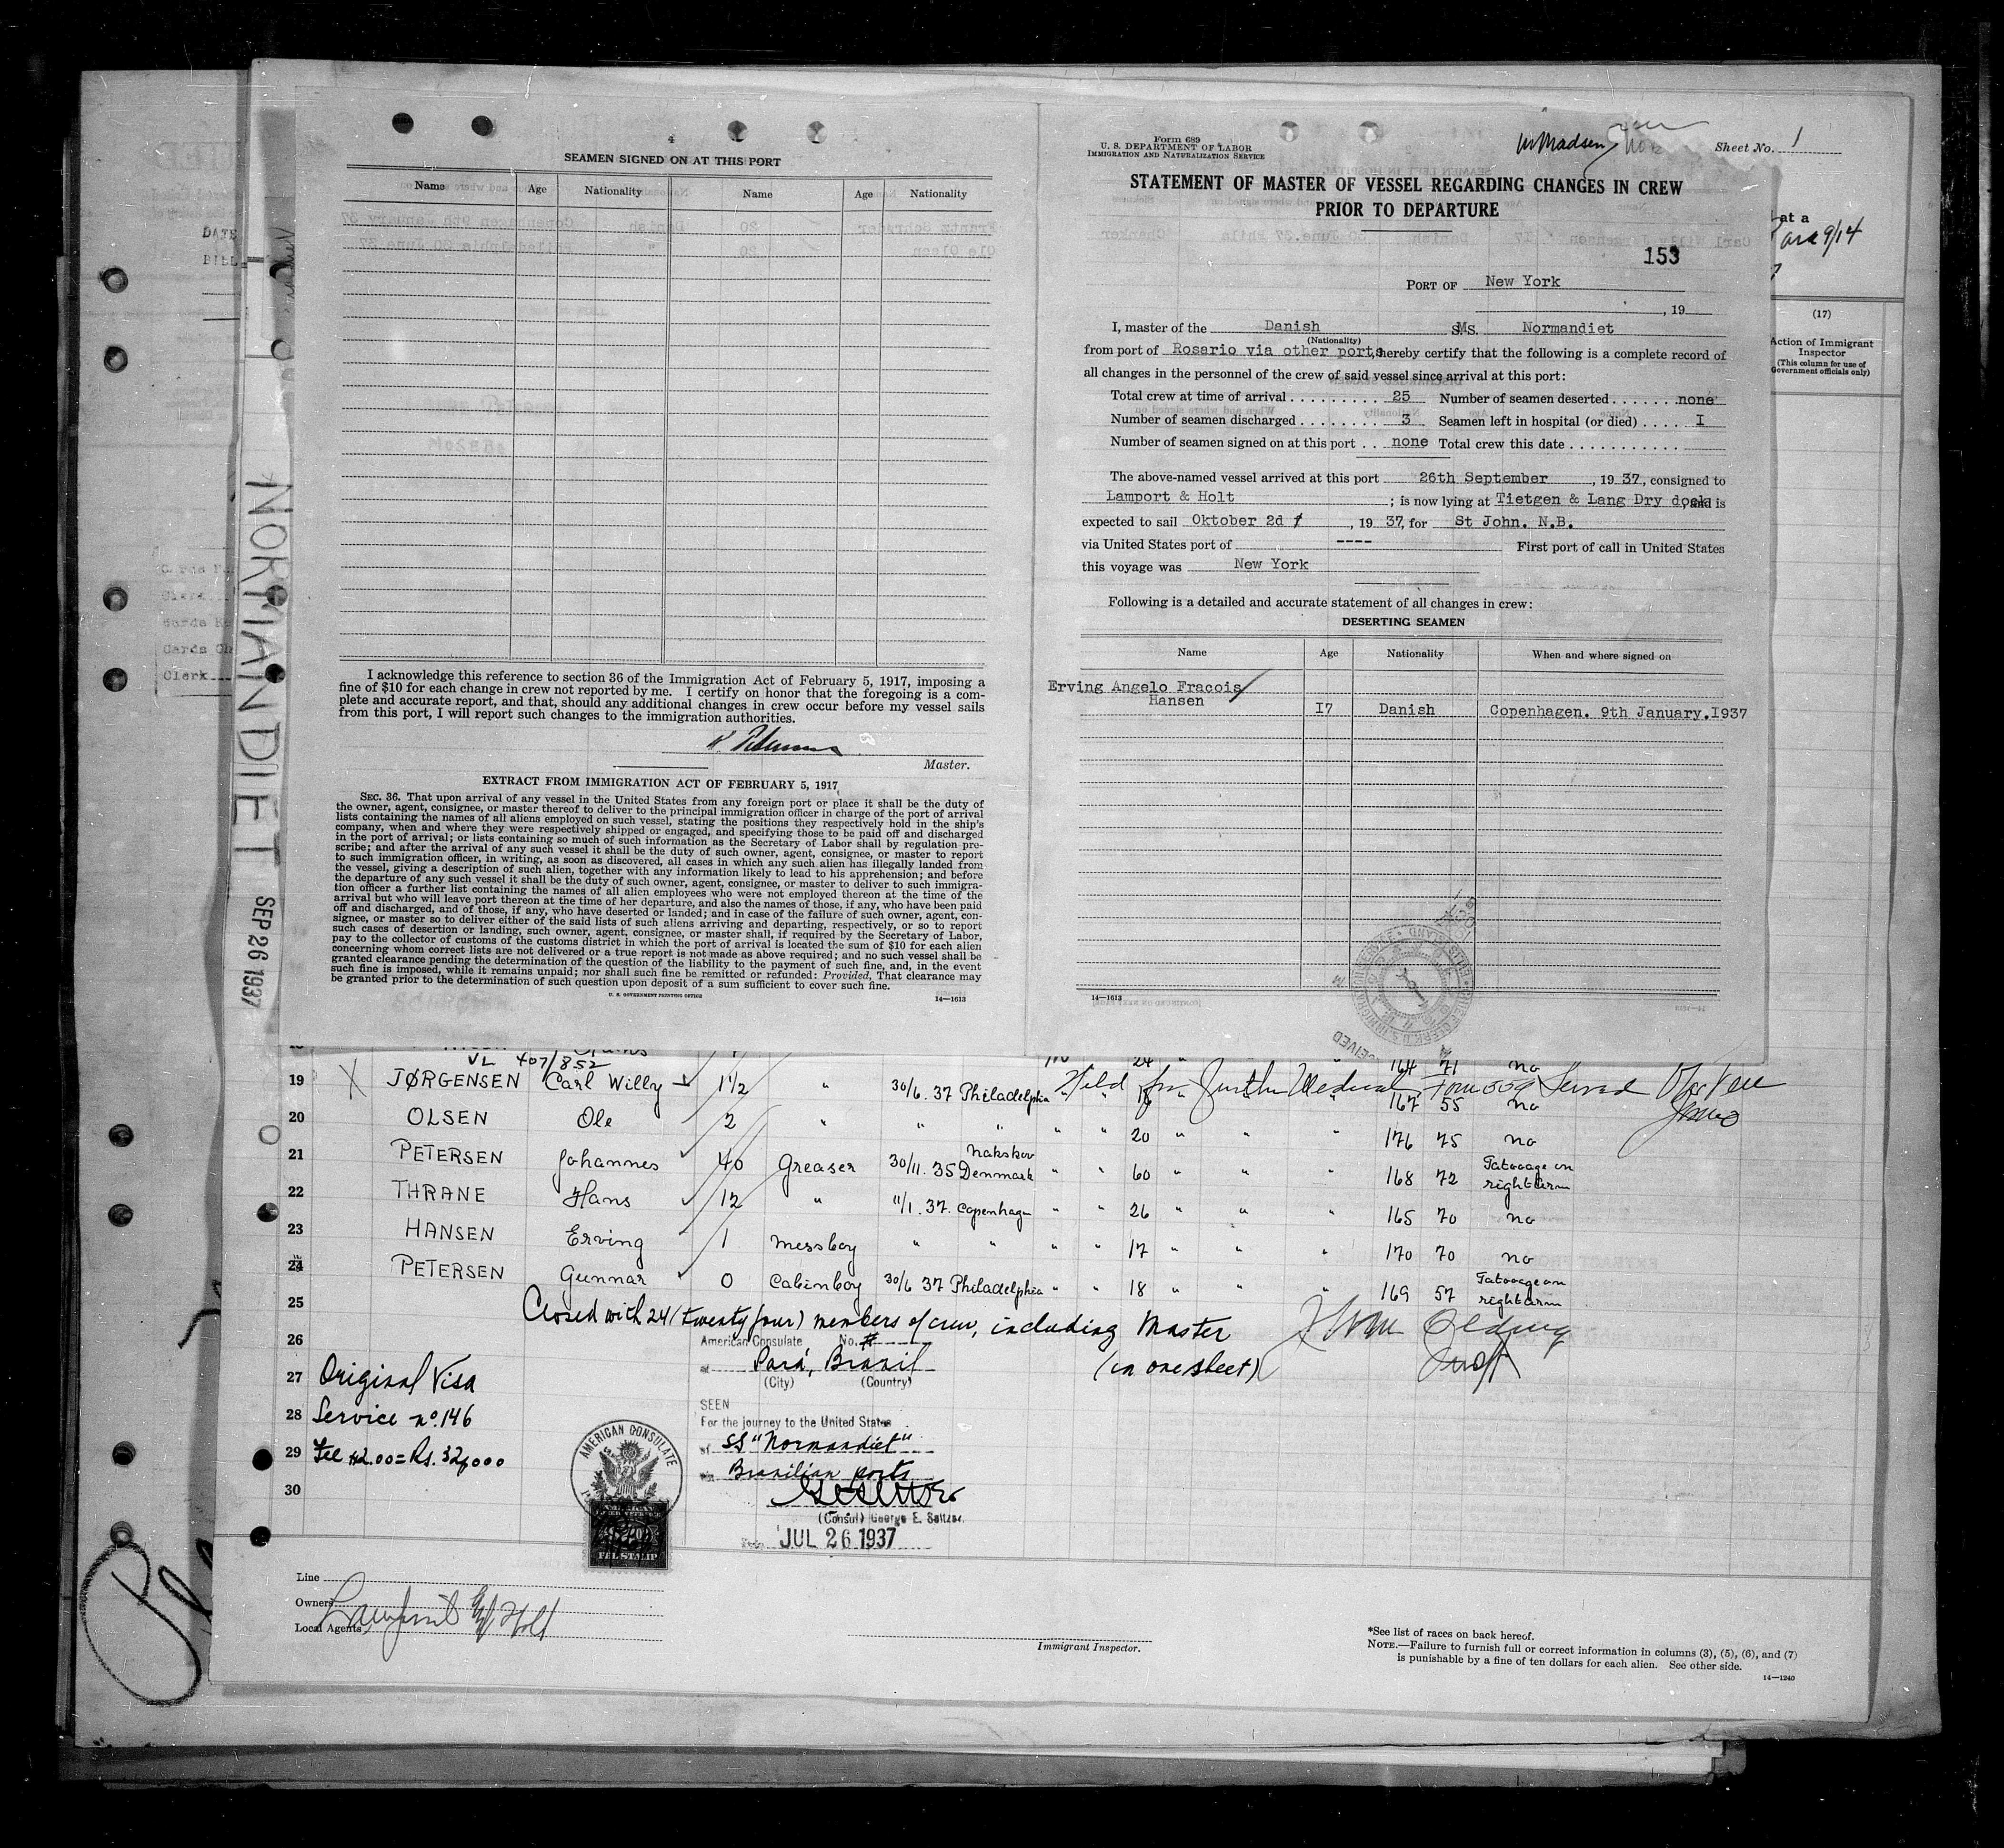 4
SEAMEN SIGNED ON AT THIS PORT
Name Age Nationality Name Age Nationality
I acknowledge this reference to section 36 of the Immigration Act of February 5, 1917, imposing a
fine of $10 for each change in crew not reported by me. I certify on honor that the foregoing is a com-
plete and accurate report, and that, should any additional changes in crew occur before my vessel sails
from this port, I will report such changes to the immigration authorities.
Master.
EXTRACT FROM IMMIGRATION ACT OF FEBRUARY 5, 1917
SEC. 36. That upon arrival of any vessel in the United States from any foreign port or place it shall be the duty of
the owner, agent, consignee, or master thereof to deliver to the principal immigration officer in charge of the port of arrival
lists containing the names of all aliens employed on such vessel, stating the positions they respectively hold in the ship's
company, when and where they were respectively shipped or engaged, and specifying those to be paid off and discharged
in the port of arrival; or lists containing so much of such information as the Secretary of Labor shall by regulation pre-
scribe; and after the arrival of any such vessel it shall be the duty of such owner, agent, consignee, or master to report
to such immigration officer, in writing, as soon as discovered, all cases in which any such alien has illegally landed from
the vessel, giving a description of such alien, together with any information likely to lead to his apprehension; and before
the departure of any such vessel it shall be the duty of such owner, agent, consignee, or master to deliver to such immigra-
tion officer a further list containing the names of all alien employees who were not employed thereon at the time of the
arrival but who will leave port thereon at the time of her departure, and also the names of those, if any, who have been paid
off and discharged, and of those, if any, who have deserted or landed; and in case of the failure of such owner, agent, con-
signee, or master so to deliver either of the said lists of such aliens arriving and departing, respectively, or so to report
such cases of desertion or landing, such owner, agent, consignee, or master shall, if required by the Secretary of Labor,
pay to the collector of customs of the customs district in which the port of arrival is located the sum of $10 for each alien
concerning whom correct lists are not delivered or a true report is not made as above required; and no such vessel shall be
granted clearance pending the determination of the question of the liability to the payment of such fine, and, in the event
such fine is imposed, while it remains unpaid; nor shall such fine be remitted or refunded: Provided, That clearance may
be granted prior to the determination of such question upon deposit of a sum sufficient to cover such fine.
U. S. GOVERNMENT PRINTING OFFICE 14—1613
Form 689
U. S. DEPARTMENT OF LABOR
IMMIGRATION AND NATURALIZATION SERVICE
Madsen
Sheet No. 1
STATEMENT OF MASTER OF VESSEL REGARDING CHANGES IN CREW
PRIOR TO DEPARTURE
153
PORT OF New York
, 19
I, master of the Danish S.S. Normandiet
(Nationality)
from port of Rosario via other ports, hereby certify that the following is a complete record of
all changes in the personnel of the crew of said vessel since arrival at this port:
Total crew at time of arrival 25 Number of seamen deserted none
Number of seamen discharged 3 Seamen left in hospital (or died) I
Number of seamen signed on at this port none Total crew this date
The above-named vessel arrived at this port 26th September, 1937, consigned to
Lamport & Holt ; is now lying at Tietgen & Lang Dry dock, and is
expected to sail Oktober 2d, 1937, for St John. N.B.
via United States port of ---- First port of call in United States
this voyage was New York
Following is a detailed and accurate statement of all changes in crew:
DESERTING SEAMEN
Name Age Nationality When and where signed on
Erving Angelo Fracois
Hansen I7 Danish Copenhagen. 9th January.I937
14—1613
at a
9/14
(17)
Action of Immigrant
Inspector
(This column for use of
Government officials only)
NORMANDIET
SEP 26 1937
DATE
Clerk
24 " 164 71 no
VL 407/852
19 X JØRGENSEN Carl Willy 1½ " 30/6. 37 Philadelphia " " 18 " 167 55 no
Held for further Medical
20 OLSEN Ole 2 " " " " " 20 " " " 176 75 no
21 PETERSEN Johannes 40 Greaser 30/11. 35 Nakskov Denmark " " 60 " " " 168 72 Tatooage on right arm
22 THRANE Hans 12 " 11/1. 37. Copenhagen " " 26 " " " 165 70 no
23 HANSEN Erving 1 messboy " " " " 17 " " " 170 70 no
24 PETERSEN Gunnar 0 Cabinboy 30/6 37 Philadelphia " " 18 " " " 169 57 Tatooage on right arm
25 Closed with 24 (twenty four) members of crew, including Master
26 American Consulate No. #
at Pará, Brazil (in one sheet)
27 Original Visa
(City) (Country)
SEEN
28 Service no. 146
For the journey to the United States
of SS "Normandiet"
29 Fee $2.00 = Rs. 32,000
via Brazilian ports
30
(Consul) George E. Seltzer.
JUL 26 1937
AMERICAN CONSULATE
FEE STAMP
Line
Owners
Local Agents Lamport & Holt
Immigrant Inspector.
*See list of races on back hereof.
NOTE.—Failure to furnish full or correct information in columns (3), (5), (6), and (7)
is punishable by a fine of ten dollars for each alien. See other side.
14—1240